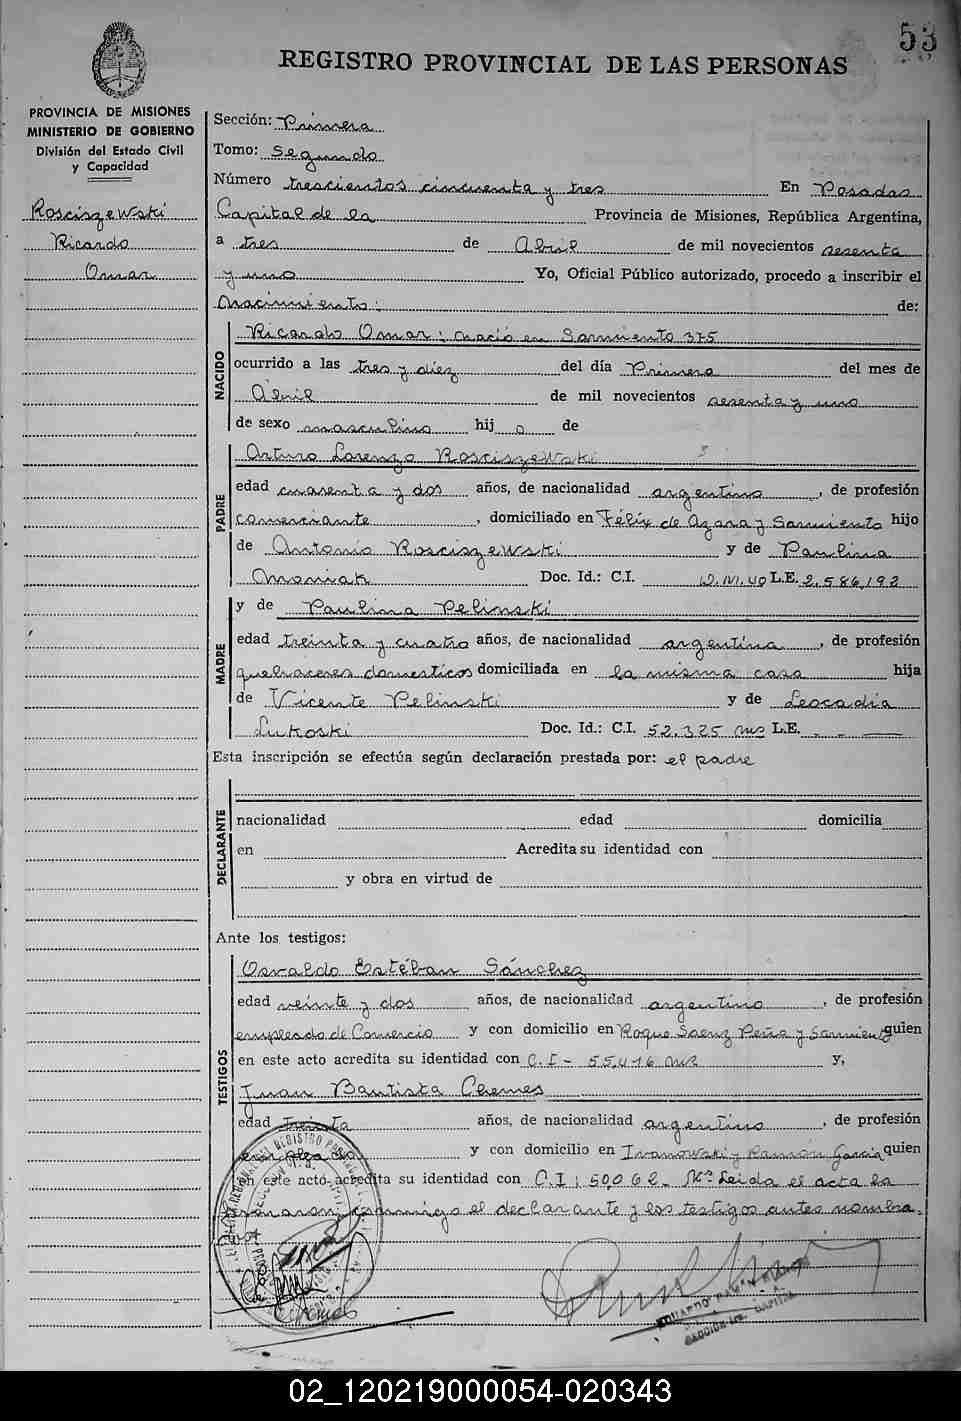 53
REGISTRO PROVINCIAL DE LAS PERSONAS
PROVINCIA DE MISIONES
MINISTERIO DE GOBIERNO
División del Estado Civil
y Capacidad
Rosciszewski
Ricardo
Omar
Sección: Primera
Tomo: Segundo
Número trescientos cincuenta y tres En Posadas
Capital de la Provincia de Misiones, República Argentina,
a tres de Abril de mil novecientos sesenta
y uno Yo, Oficial Público autorizado, procedo a inscribir el
nacimiento: de:
NACIDO
Ricardo Omar: nació en Sarmiento 375
ocurrido a las tres y diez del día Primero del mes de
Abril de mil novecientos sesenta y uno
de sexo masculino hij o de
PADRE
Arturo Lorenzo Rosciszewski
edad cuarenta y dos años, de nacionalidad argentino, de profesión
comerciante, domiciliado en Félix de Azara y Sarmiento hijo
de Antonio Rosciszewski y de Paulina
Omoniak Doc. Id.: C.I. D.M.40 L.E. 2.586,192
MADRE
y de Paulina Pelinski
edad treinta y cuatro años, de nacionalidad argentina, de profesión
quehaceres domesticos domiciliada en la misma casa hija
de Vicente Pelinski y de Leocadia
Lukoski Doc. Id.: C.I. 52.325 Ms L.E. - - —
Esta inscripción se efectúa según declaración prestada por: el padre
DECLARANTE
nacionalidad edad domicilia
en Acredita su identidad con
y obra en virtud de
Ante los testigos:
TESTIGOS
Osvaldo Estéban Sánchez
edad veinte y dos años, de nacionalidad argentino, de profesión
empleado de Comercio y con domicilio en Roque Saenz Peña y Sarmiento quien
en este acto acredita su identidad con C.I - 55,416 Ms y,
Juan Bautista Chemes
edad treinta años, de nacionalidad argentino, de profesión
empleado y con domicilio en Ivanowski y Ramón García quien
en este acto acredita su identidad con C.I: 50062- Ms Leida el acta la
firmaron conmigo el declarante y los testigos antes nombra-
dos
02_120219000054-020343